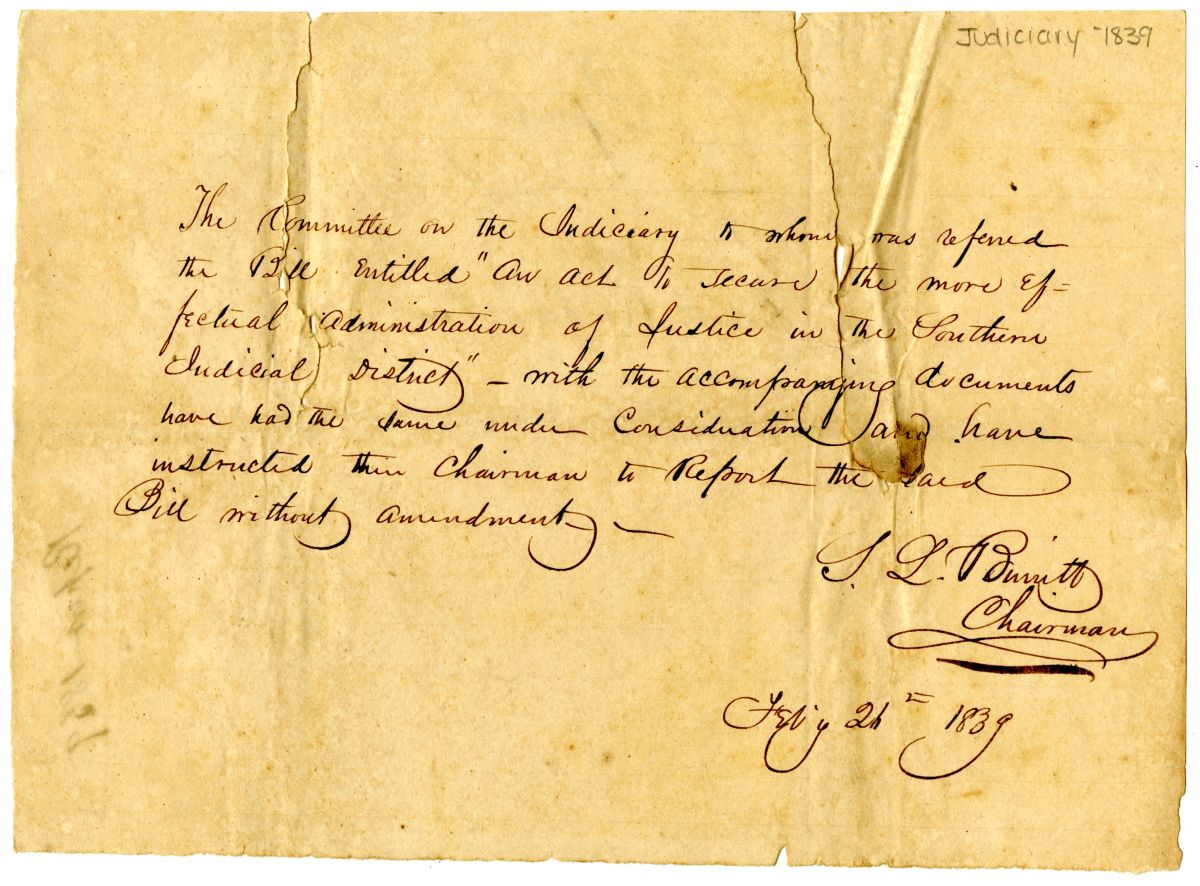 Judiciary - 1839
The Committee on the Judiciary to whom was referred
the Bill Entitled "An act to secure the more Ef=
fectual administration of Justice in the Southern
Judicial District" - with the accompanying documents
have had the same under Consideration and have
instructed their Chairman to Report the said
Bill without amendment -
S. L. Burritt
Chairman
Feb'y 26th 1839